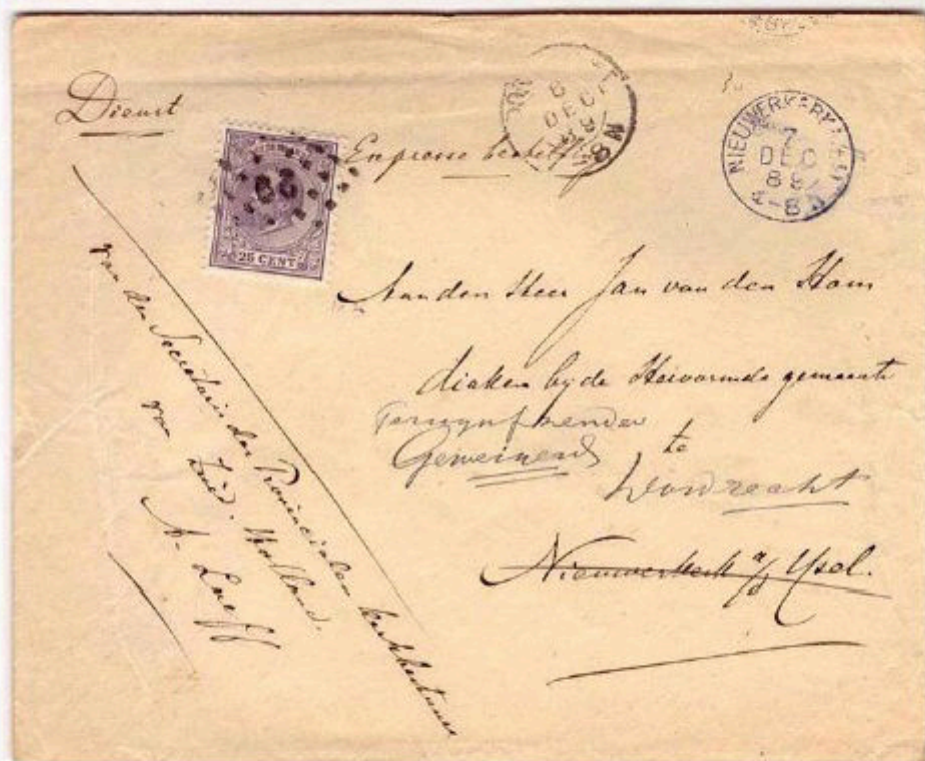 Dienst
Expresse bestelling
25 CENT
8
DEC
89
8 N
NIEUWERKERK
7
DEC
88
4-8 N
Aan den Heer Jan van den Ham
diaken bij de Hervormde gemeente
afzender
Geweigerd te
Dordrecht
Nieuwerkerk a/d Ysel.
van den Secretaris des Provincialen Kerkbestuurs
van Zuid. Holland.
A. Loeff